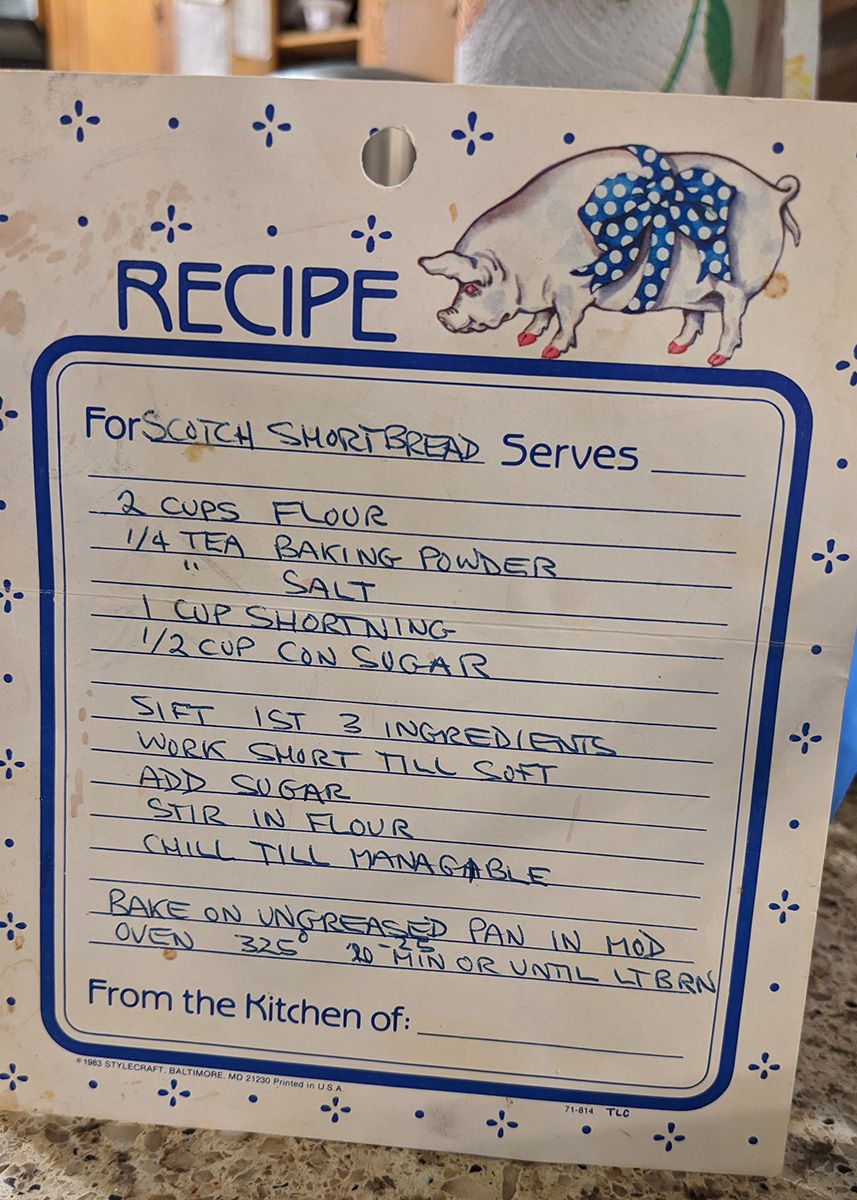 RECIPE
For SCOTCH SHORTBREAD Serves
2 CUPS FLOUR
1/4 TEA BAKING POWDER
" SALT
1 CUP SHORTNING
1/2 CUP CON SUGAR
SIFT 1ST 3 INGREDIENTS
WORK SHORT TILL SOFT
ADD SUGAR
STIR IN FLOUR
CHILL TILL MANAGABLE
BAKE ON UNGREASED PAN IN MOD
OVEN 325° 20-25 MIN OR UNTIL LT BRN
From the Kitchen of:
© 1983 STYLECRAFT, BALTIMORE, MD 21230 Printed in U.S.A
71-814 TLC